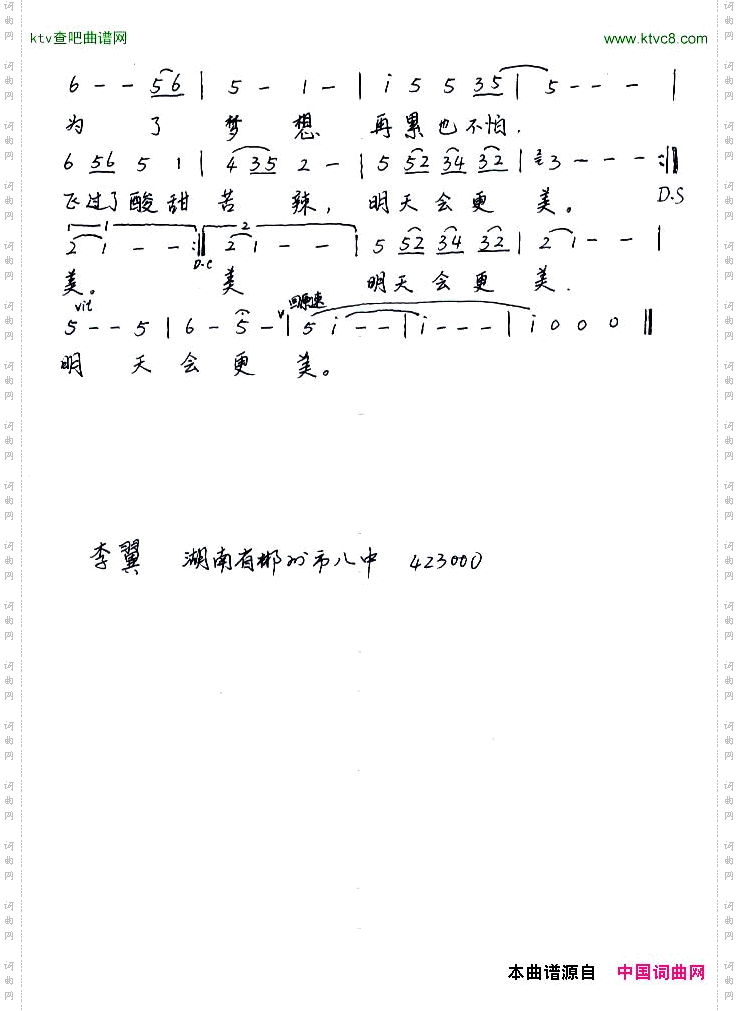 ktv查吧曲谱网 www.ktvc8.com
6 - - 56 | 5 - 1 - | i 5 5 35 | 5 - - - |
为 了 梦 想 再累也不怕.
6 56 5 1 | 4 35 2 - | 5 52 34 32 | 2 3 - - - :||
飞过了酸甜苦 辣, 明天会更 美。 D.S
1 1 2
2 1 - - :|| 2 1 - - | 5 52 34 32 | 2 1 - - |
D.C
美。 美 明天会更 美.
vit 回原速
5 - - 5 | 6 - 5 - V | 5 i - - | i - - - | i 0 0 0 ||
明 天 会 更 美。
李翼 湖南省郴州市八中 423000
本曲谱源自 中国词曲网
词曲网